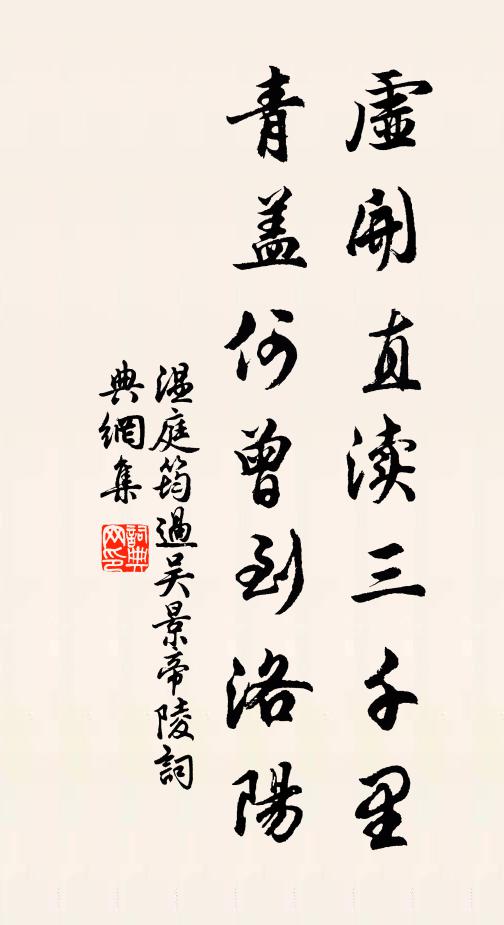 虛開直渎三千里
青盖何曾到洛陽
温庭筠過吴景帝陵詞
典網集
詞典網印